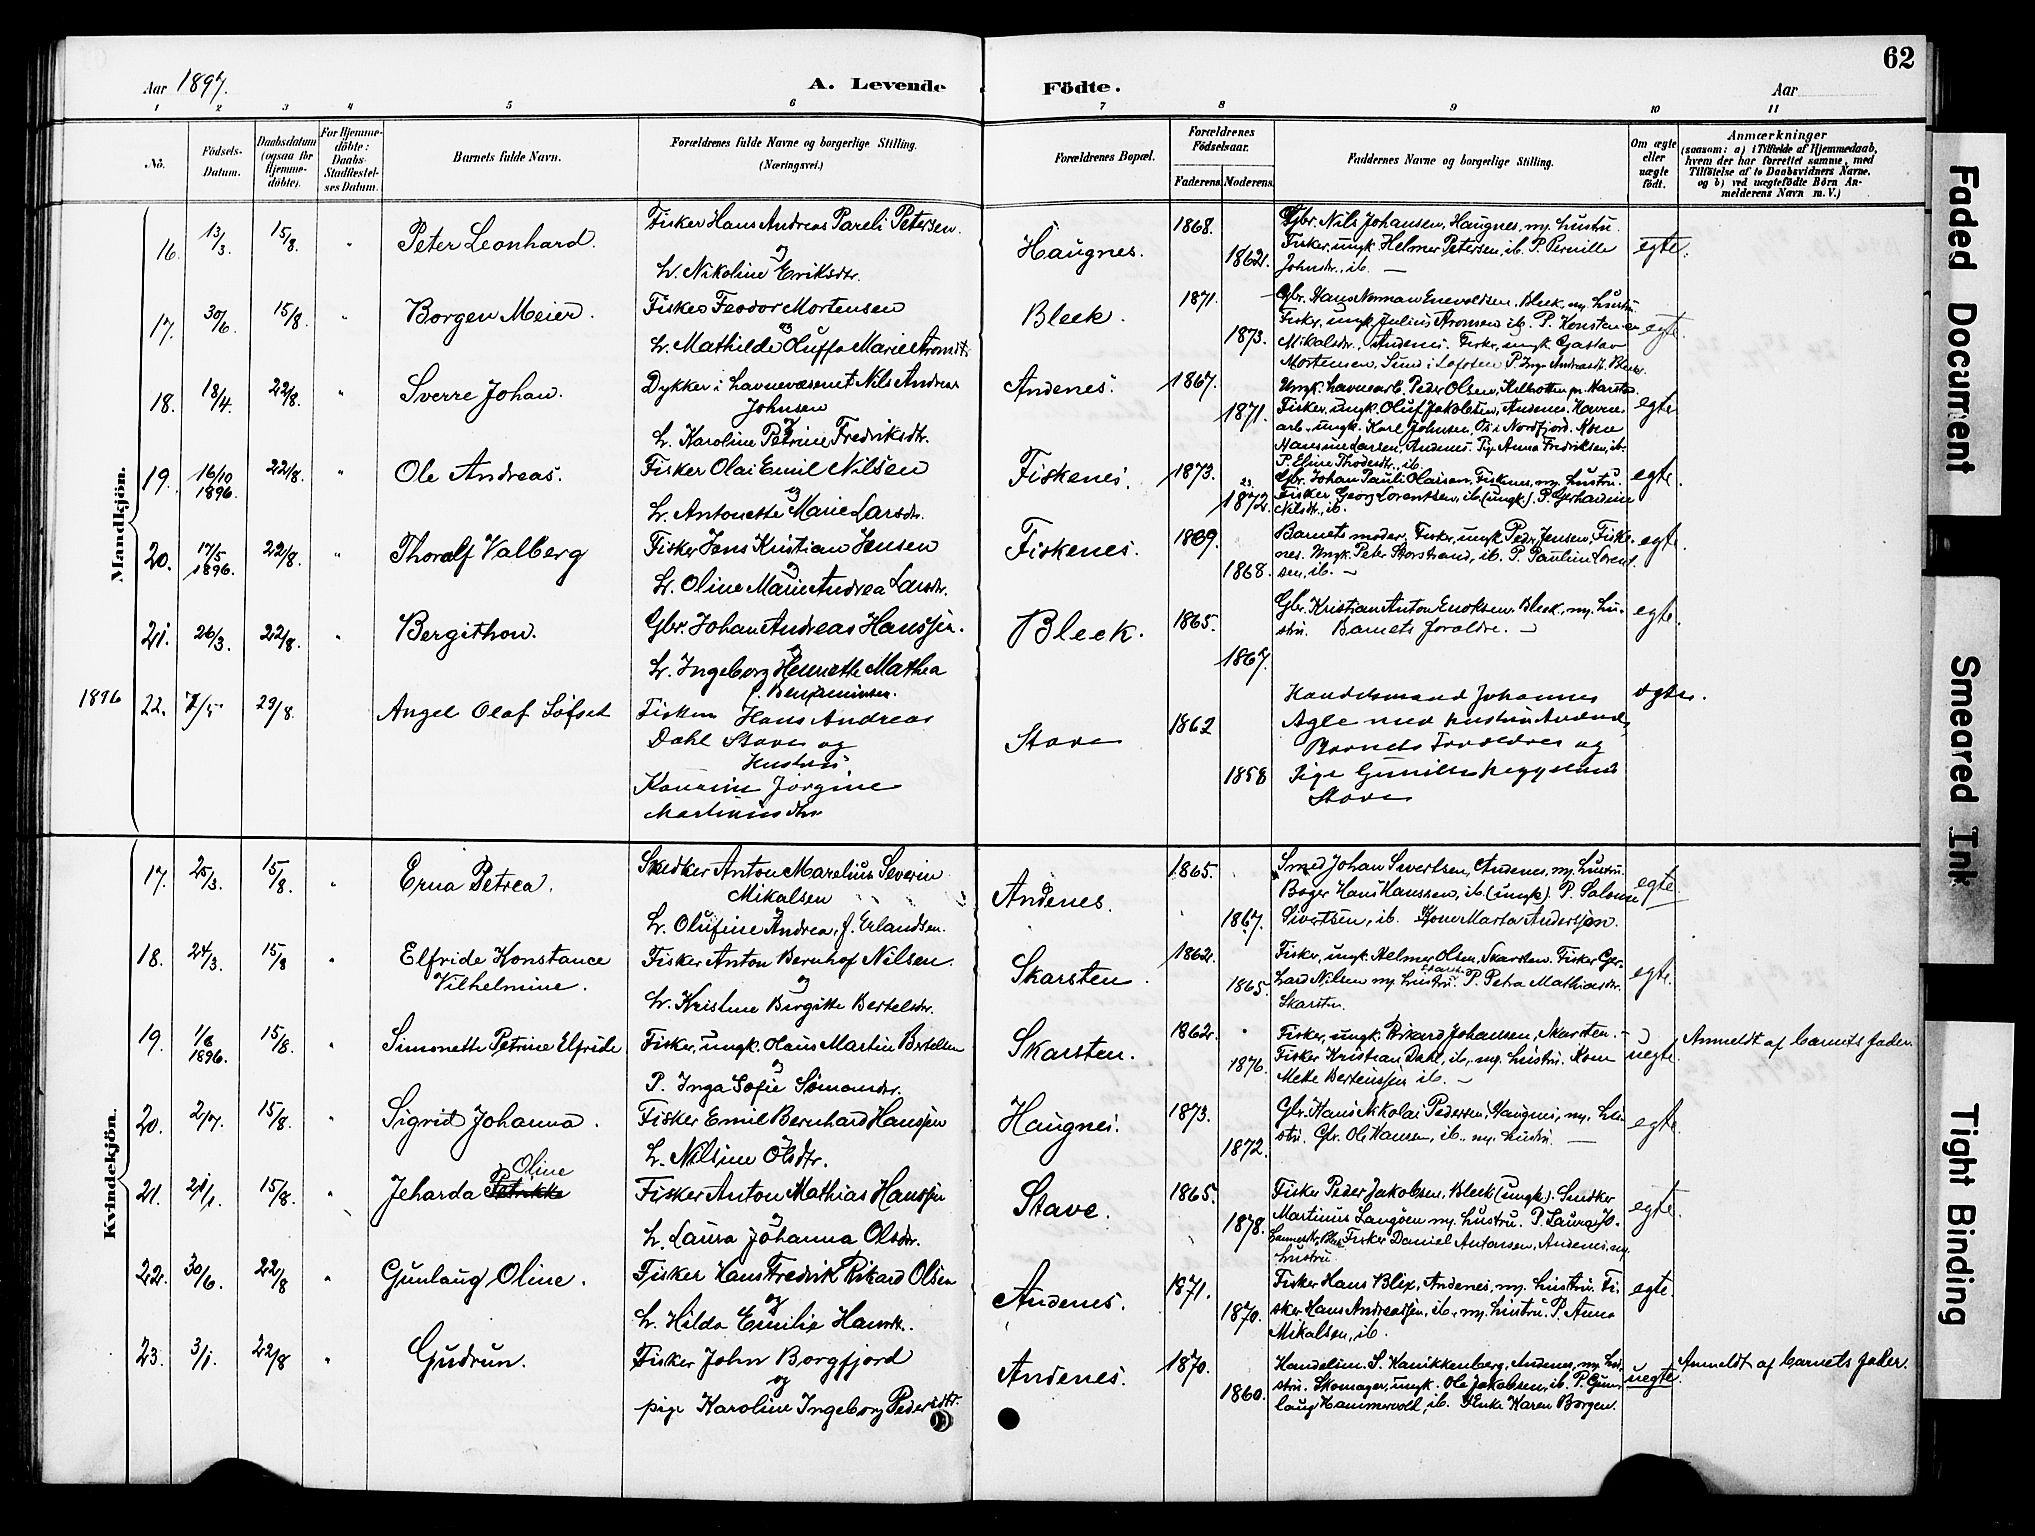 62
Aar 1897.
A. Levende Födte.
Aar
1 2 3 4 5 6 7 8 9 10 11
No.
Födsels-
Datum.
Daabsdatum
(ogsaa for
Hjemme-
döbte).
For Hjemme-
döbte:
Daabs-
Stadfæstel-
ses Datum.
Barnets fulde Navn.
Forældrenes fulde Navne og borgerlige Stilling.
(Næringsvei.)
Forældrenes Bopæl.
Forældrenes
Födselsaar.
Faderens. Moderens.
Faddernes Navne og borgerlige Stilling.
Om ægte
eller
uægte
födt.
Anmærkninger
(saasom: a) i Tilfælde af Hjemmedaab,
hvem der har forrettet samme, med
Tilföielse af to Daabsvidners Navne,
og b) ved uægtefödte Börn An-
melderens Navn m. V.)
Mandkjön.
16. 13/3. 15/8. " Peter Leonhard.
Fisker Hans Andreas Pareli Petersen
og
h. Nikoline Eriksdtr.
Haugnes.
1868.
1862.
Gbr. Nils Johansen, Haugnes, m. hustru.
Fisker, ungk. Helmer Petersen, ib. P. Pernille
Johnsdr., ib. —
egte.
17. 30/6. 15/8. " Borgen Meier.
Fisker Feodor Mortensen
og
h. Mathilde Oluffa Marie Aronsdtr
Bleek.
1871.
1873.
Gbr. Hans Norman Enevoldsen, Bleek, m. hustru.
Fisker, ungk. Julius Aronsen ib. P.
Mikalsdr., Andenes. Fisker, ungk. Gustav
Mortensen, Sund i Lofoten P. Inga Andreasdt. Bleek.
egte.
18. 18/4. 22/8. " Sverre Johan.
Dykker i havnevæsenet Nils Andreas
Johnsen
og
h. Karoline Petrine Fredriksdtr.
Andenes.
1867.
1871.
Ungk. havnearb. Peder Olsen,
Fisker, ungk. Oluf Jakobsen, Andenes. Havne
arb. ungk. Karl Johnsen, Os i Nordfjord. Kone
Hansine Larsen, Andenes. Pige Anna Fredriksen, ib.
P. Eline Thodesdtr., ib.
egte
19. 16/10 1896. 22/8. " Ole Andreas.
Fisker Olai Emil Nilsen
og
h. Antonette Marie Larsdtr.
Fiskenes.
1873.
1872.
Gbr. Johan Pauli Olaisen, Fiskenes, m. hustru.
Fisker Georg Lorentsen, ib. (ungk.). P. Gerhardine
Nilsdtr., ib.
egte.
20. 17/5 1896. 22/8. " Thoralf Valberg
Fisker Jens Kristian Jensen
og
h. Oline Marie Andrea Larsdtr.
Fiskenes.
1869.
1868.
Barnets moder. Fisker, ungk. Peder Jensen, Fiske-
nes. Ungk. Peter Storstrand, ib. P. Pauline Lorent-
sen, ib. —
egte.
21. 26/3. 22/8. " Bergithon.
Gbr. Johan Andreas Hanssen.
og
h. Ingeborg Henrette Mathea
f. Benjaminsen.
Bleek.
1865.
1867.
Gbr. Kristian Anton Enoksen, Bleek, m. hu-
stru. Barnets foreldre. —
egte.
1896 22. 7/5 29/8. Angel Olaf Løfset
Fisker Hans Andreas
Dahl Stave og
Hustru
Jørgine
Martinusdtr
Stave
1862
1858
Handelsmand Johannes
Agle med hustru
Barnets Forældre og
Pige
Stave
egte.
Kvindekjön.
17. 25/3. 15/8. " Erna Petrea.
Snedker Anton Marelius Severin
Mikalsen
og
h. Olufine Andrea, f. Erlandsen.
Andenes.
1865.
1867.
Smed Johan Sivertsen, Andenes, m. hustru.
Bager Hans Hanssen, ib. (ungk.). P. Salomine
Sivertsen, ib. Kone Marta Anderssen.
egte.
18. 24/3. 15/8 " Elfride Konstance
Vilhelmine.
Fisker Anton Bernhof Nilsen.
og
h. Kristine Birgitte Bertelsdtr.
Skarsten.
1862.
1865.
Fisker, ungk. Helmer Olsen, Skarsten. Fisker Ger-
hard Nilsen m. hustru. P. Petra Mathiasdtr.
Skarsten
egte.
19. 1/6 1896. 15/8. " Simonette Petrine Elfride
Fisker, ungk. Olaus Martin Bertelsen
og
P. Inga Sofie Sømansdtr.
Skarsten.
1862.
1876.
Fisker, ungk. Rikard Johansen, Skarsten. —
Fisker Kristian Dahl, ib., m. hustru. Kone
Mette Berteussen ib. —
uegte.
Anmeldt af barnets fader.
20. 2/7. 15/8. " Sigrid Johanna.
Fisker Emil Bernhard Hanssen
h. Nilsine Olsdtr.
Haugnes.
1873.
1872.
Gbr. Hans Nikolai Pedersen, Haugnes, m. hu-
stru. Gbr. Ole Hansen, ib., m. hustru. —
egte.
21. 21/1. 15/8. " Jeharda Petrikke Oline
Fisker Anton Mathias Hanssen
og
h. Laura Johanna Olsdtr.
Stave.
1865.
1878.
Fisker Peder Jakobsen, Bleek (ungk.). Snedker
Martinus Langøen m. hustru. P. Laura Jo-
hannesdtr, Bleek. Fisker Daniel Antonsen, Andenes, m.
hustru
egte.
22. 30/6. 22/8 " Gunlaug Oline.
Fisker Hans Fredrik Rikard Olsen
og
h. Hilda Emilie Hansdtr.
Andenes.
1871.
1870.
Fisker Hans Blix, Andenes, m. hustru. Fi-
sker Hans Andreassen, ib., m. hustru. P. Anna
Mikalsen, ib.
egte.
23. 3/1. 22/8 " Gudrun.
Fisker John Borgfjord
og
pige Karoline Ingeborg Pedersdtr.
Andenes.
1870.
1860.
Handelsm. S. Kanikkenberg, Andenes, m. hu-
stru. Skomager, ungk. Ole Jakobsen, ib. P. Gun-
laug Hammervold, ib. Enke Karen Borgen.
uegte.
Anmeldt af barnets fader.
Faded Document
Smeared Ink
Tight Binding